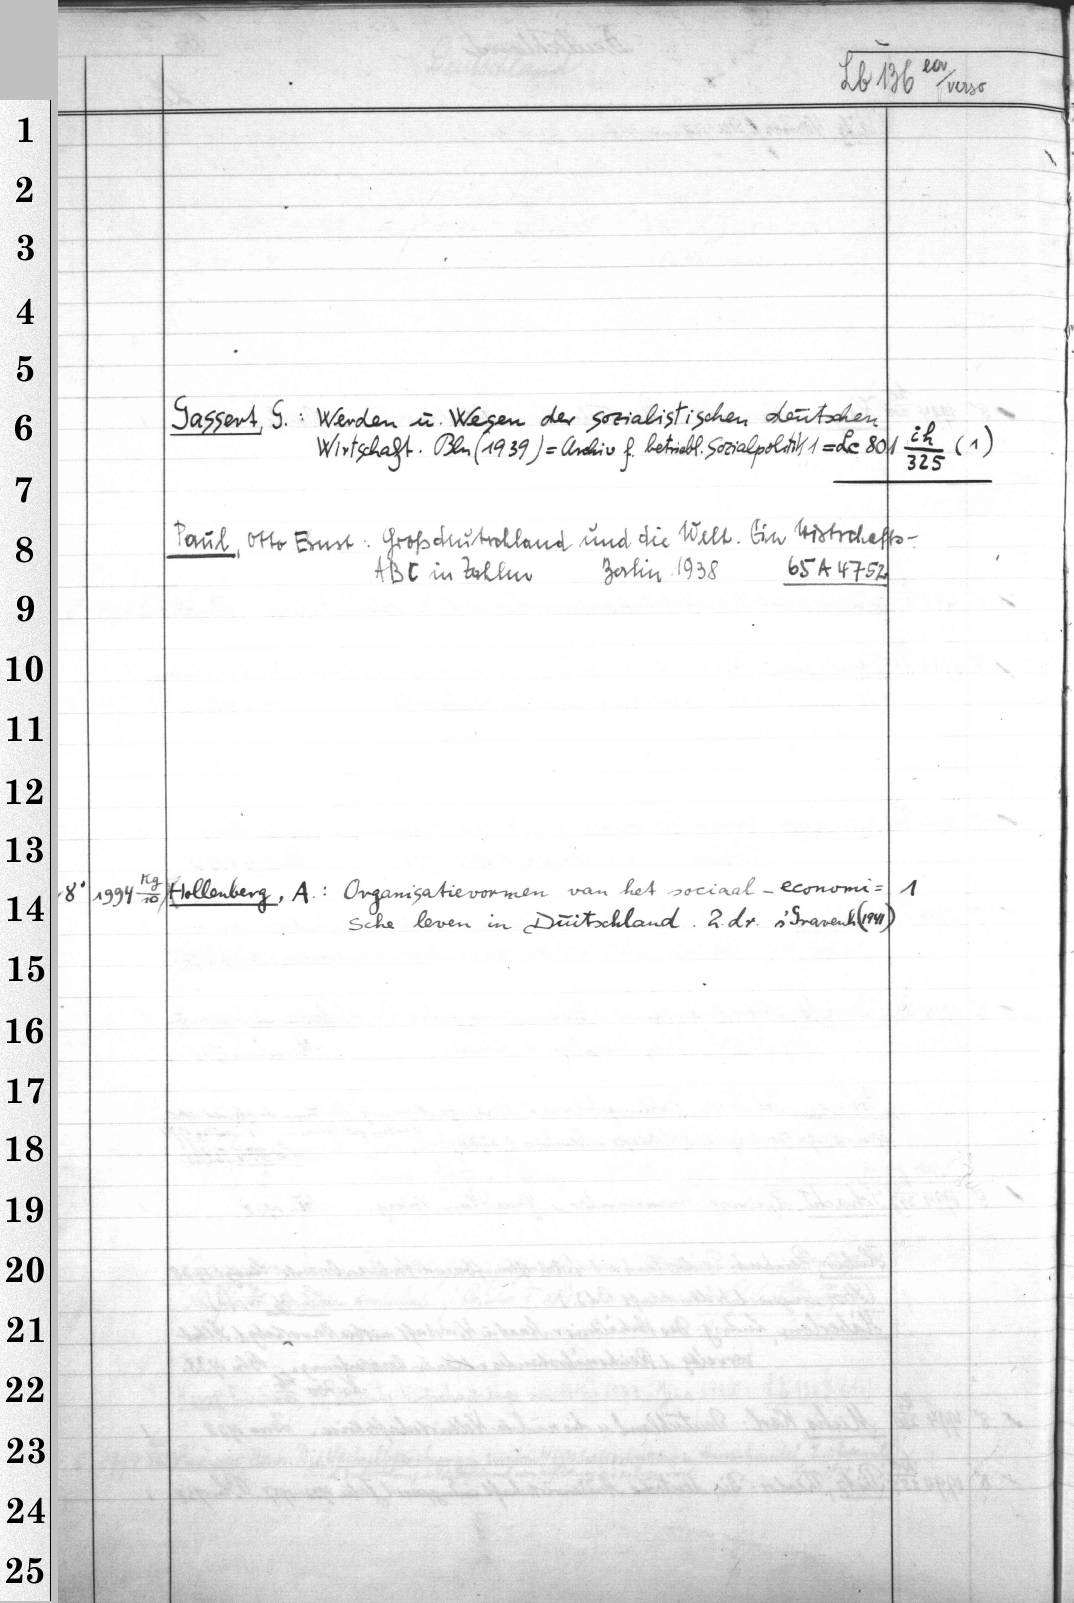 Lb 136 eav/verso
1
2
3
4
5
6
Gassert, G.: Werden u. Wesen der sozialistischen deutschen
Wirtschaft. Bln (1939) = Archiv f. betriebl. Sozialpolitik 1 = Lc 801 ih/325 (1)
7
8
Paul, Otto Ernst: Großdeutschland und die Welt. Ein Wirtschafts-
ABC in Zahlen Berlin 1938 65 A 4752
9
10
11
12
13
14
8° 1994 Kg/10 Hollenberg, A.: Organisatievormen van het sociaal-economi= 1
sche leven in Duitschland. 2. dr. s'Gravenh (1941)
15
16
17
18
19
20
21
22
23
24
25